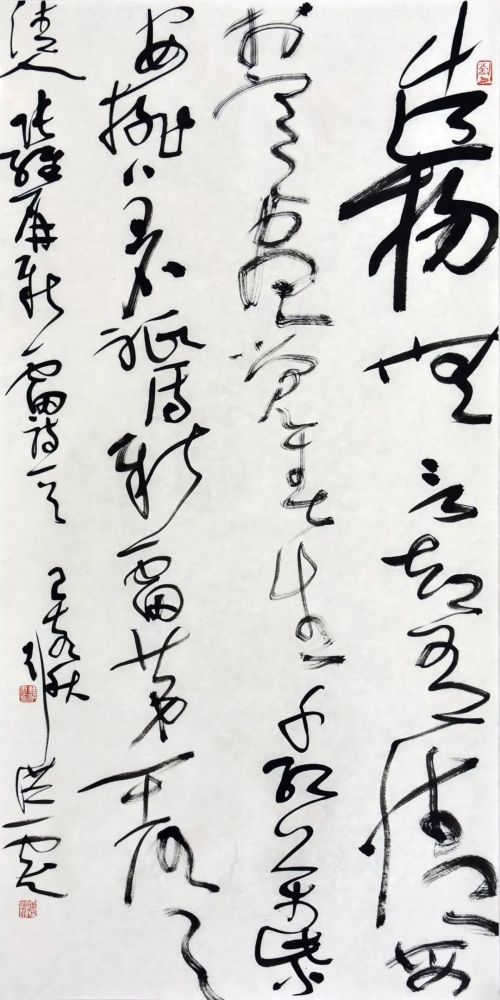 造物無言却有情每
於寒盡覺春生千红万紫
安排著祗待新雷第一声
清人張維屏新雷詩一首 己亥秋